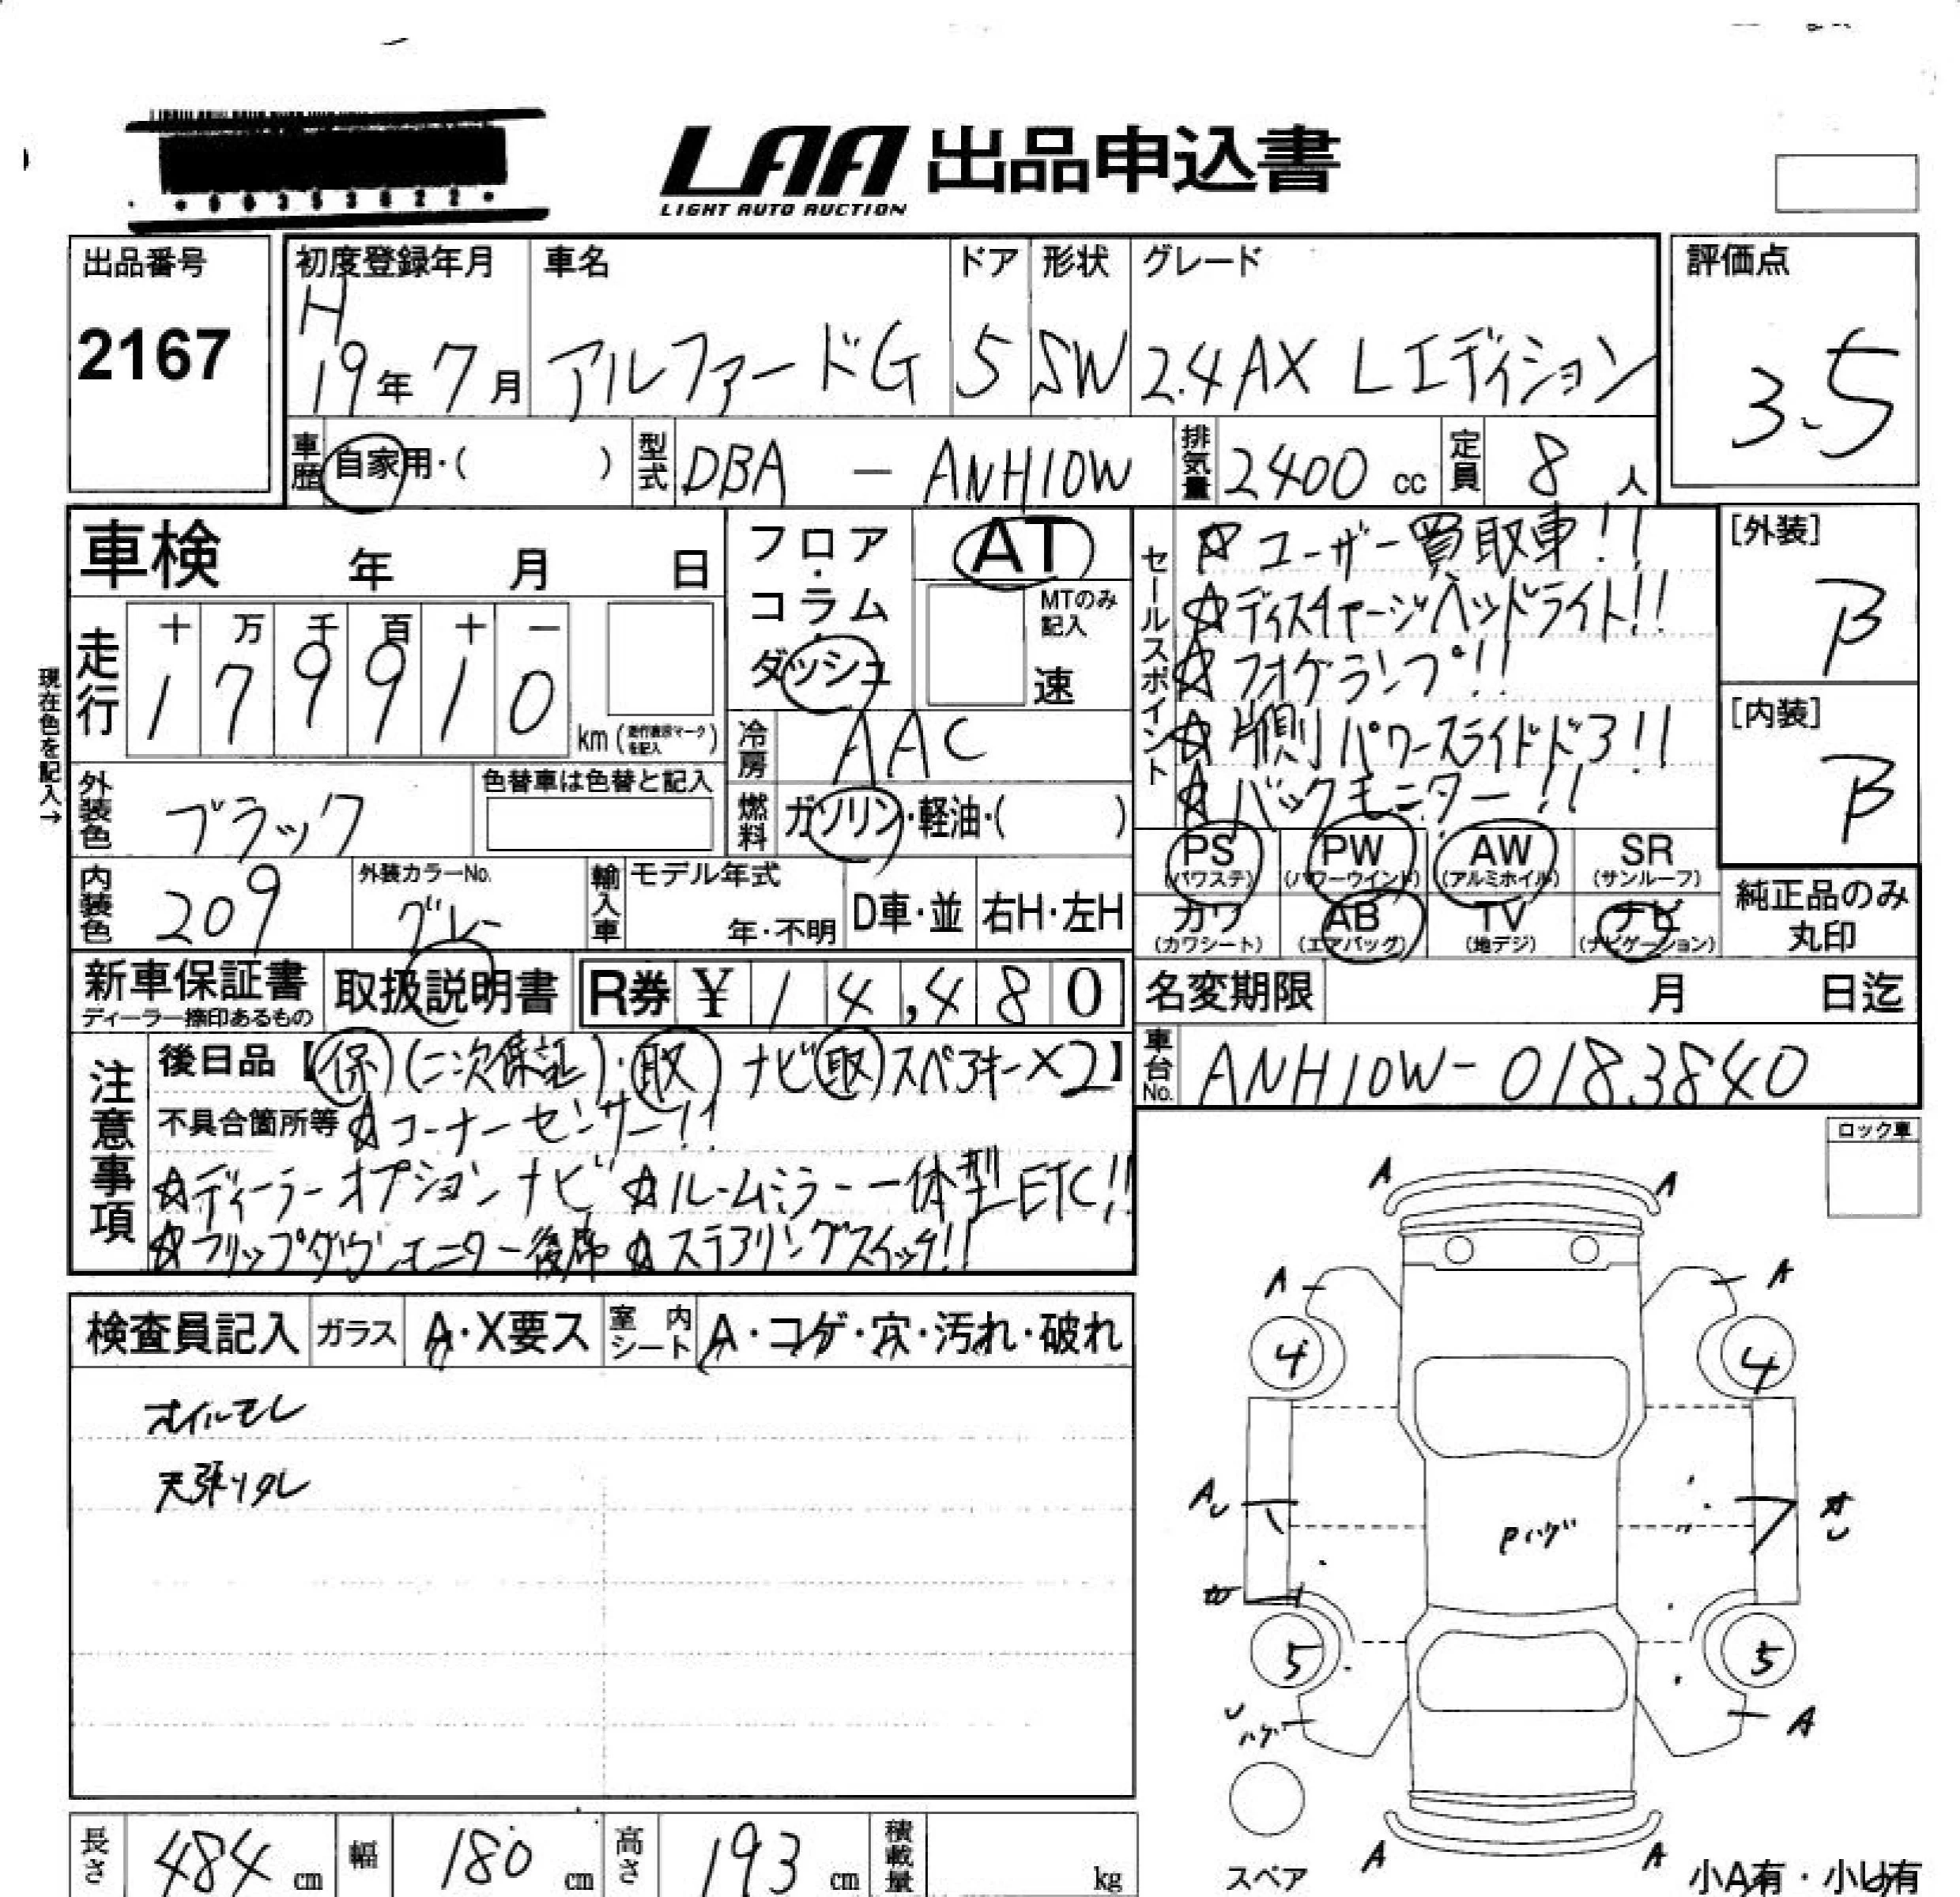 LAA 出品申込書
LIGHT AUTO AUCTION
出品番号
2167
初度登録年月
H
19年7月
車名
アルファードG
ドア
5
形状
SW
グレード
2.4AX Lエディション
評価点
3.5
車歴 自家用・( )
型式 DBA - ANH10W
排気量 2400 cc
定員 8 人
車検 年 月 日
フロア・コラム・ダッシュ
AT
MTのみ記入
速
走行
十 万 千 百 十 一
1 7 9 9 1 0
km
現在色を記入→
冷房 AAC
外装色 ブラック
色替車は色替と記入
燃料 ガソリン・軽油・( )
内装色 209
外装カラーNo.
グレー
輸入車
モデル年式
年・不明
D車・並
右H・左H
セールスポイント
☆ユーザー買取車!!
☆ディスチャージヘッドライト!!
☆フォグランプ!!
☆片側パワースライドドア!!
☆バックモニター!!
[外装]
B
[内装]
B
PS (パワステ)
PW (パワーウインド)
AW (アルミホイル)
SR (サンルーフ)
カワ (カワシート)
AB (エアバッグ)
TV (地デジ)
ナビ (ナビゲーション)
純正品のみ丸印
新車保証書
ディーラー捺印あるもの
取扱説明書
R券 ¥ 14,480
名変期限 月 日迄
車台No. ANH10W-0183840
注意事項
後日品【保(二次保証)・取 ナビ取 スペアキー×2】
不具合箇所等 ☆コーナーセンサー!!
☆ディーラーオプションナビ ☆ルームミラー一体型ETC!!
☆フリップダウンモニター後席 ☆ステアリングスイッチ!!
ロック車
検査員記入
ガラス A・X要ス
室内シート A・コゲ・穴・汚れ・破れ
オイルモレ
天張りタレ
A
A
A
A
4
4
A
Pハゲ
5
5
ハゲ
A
スペア
A
A
小A有・小U有
長さ 484 cm
幅 180 cm
高さ 193 cm
積載量 kg